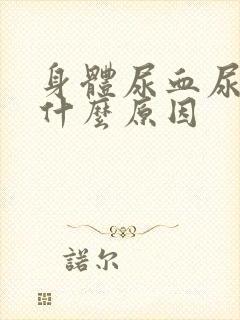 身體尿血尿
什麼原因
諾尔